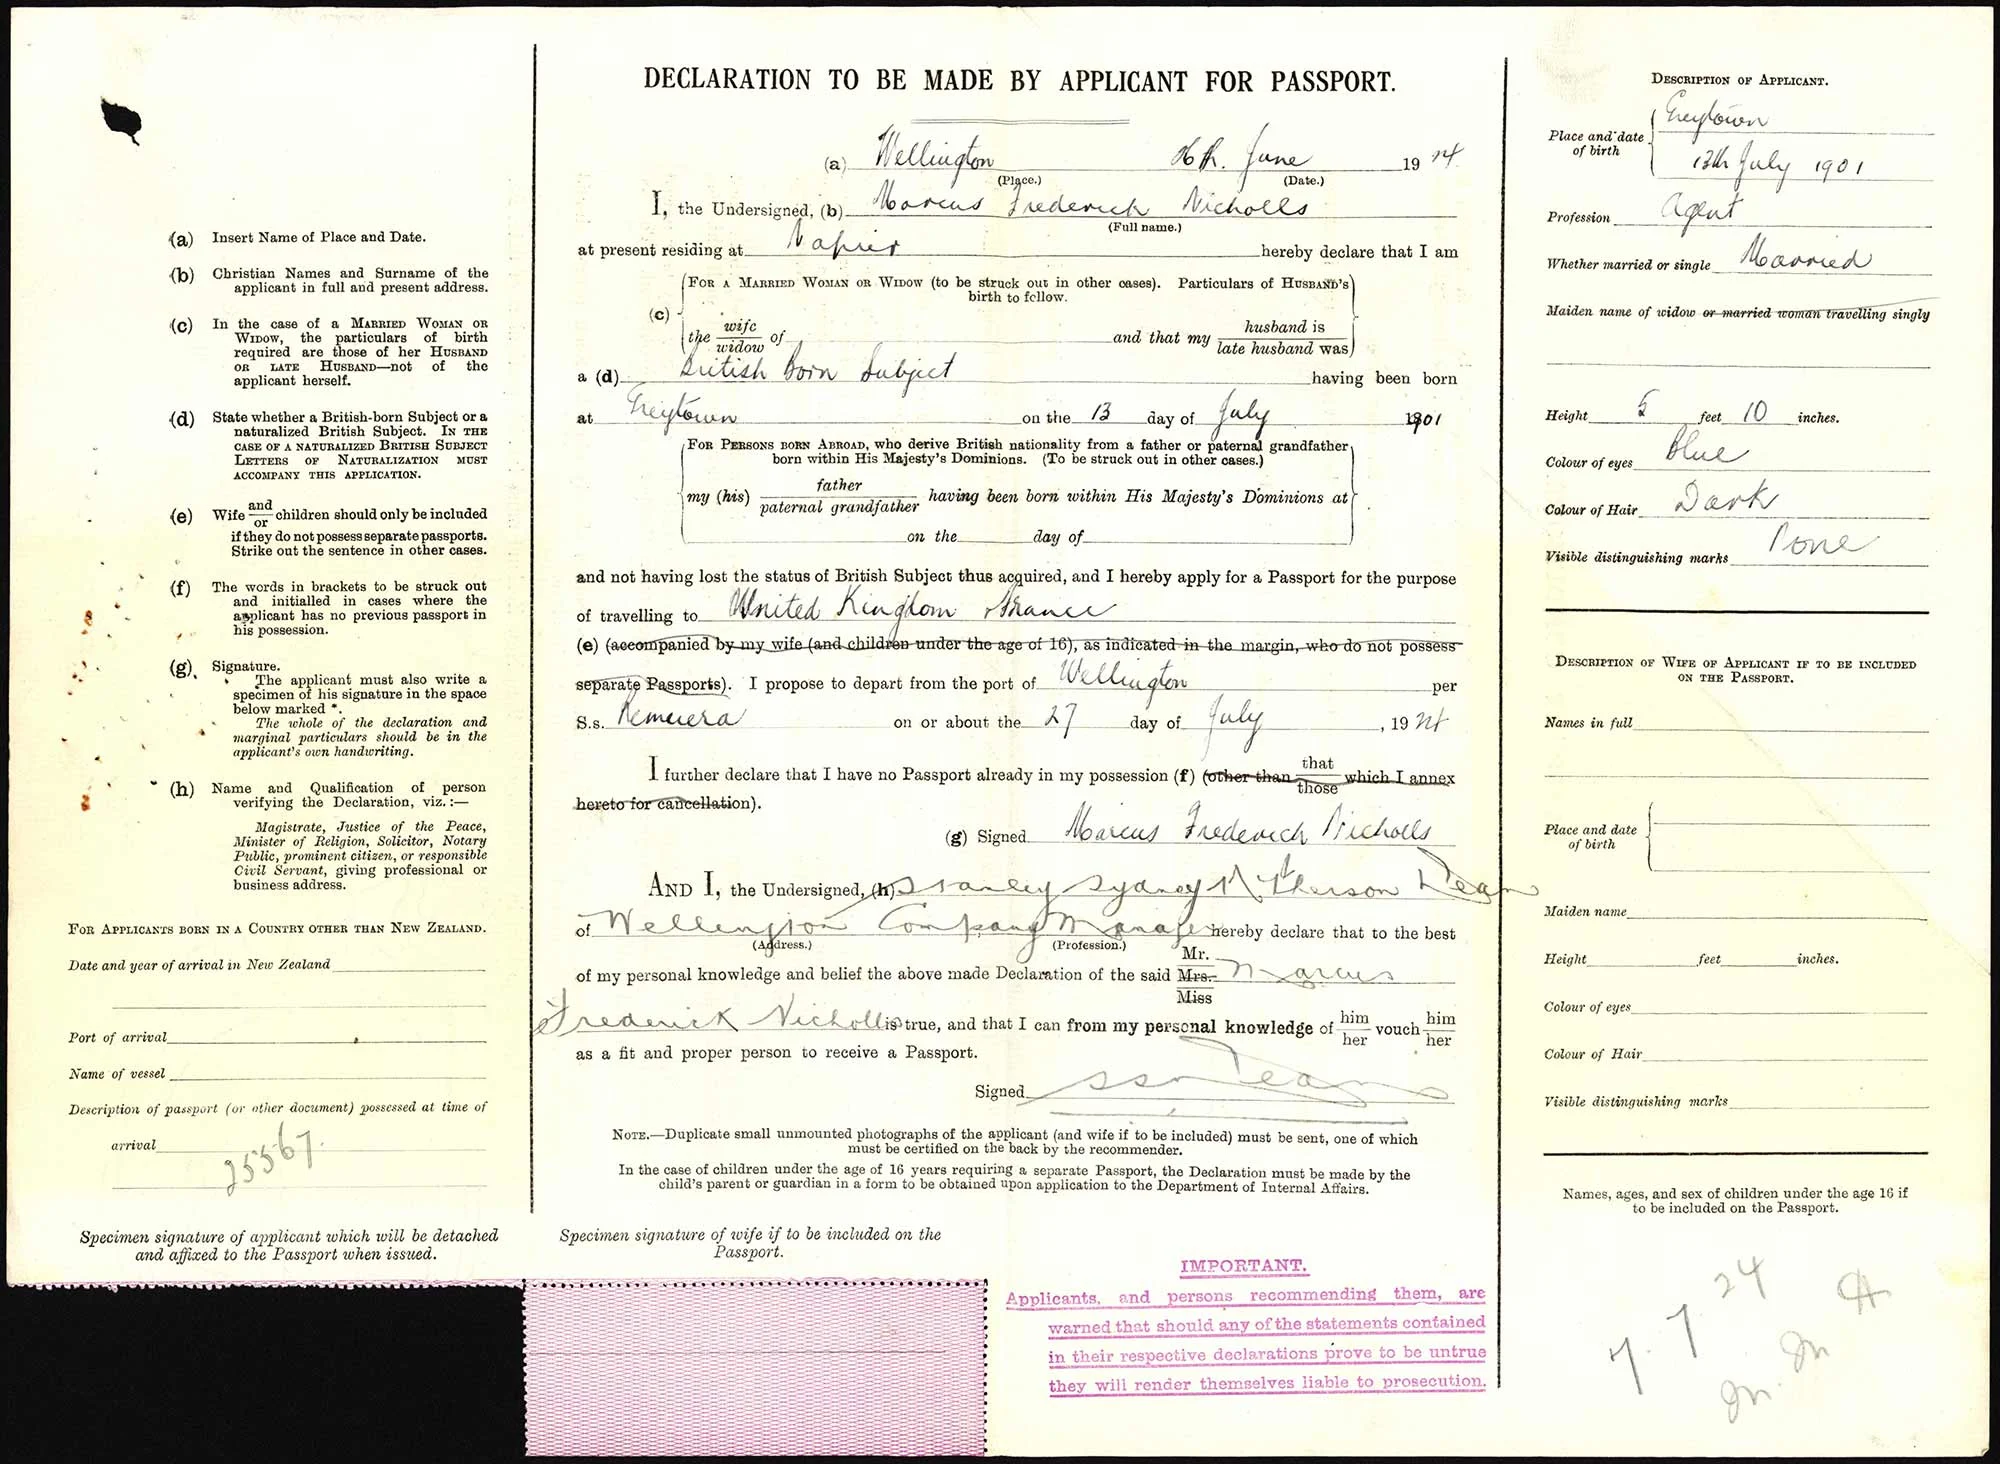 DECLARATION TO BE MADE BY APPLICANT FOR PASSPORT.
(a) Wellington June 1924
(Place.) (Date.)
I, the Undersigned, (b) Marcus Frederick Nicholls
(Full name.)
at present residing at Napier hereby declare that I am
(c) FOR A MARRIED WOMAN OR WIDOW (to be struck out in other cases). Particulars of HUSBAND'S
birth to follow.
the wife/widow of and that my husband is/late husband was
a (d) British Born Subject having been born
at Greytown on the 13 day of July 1901
FOR PERSONS BORN ABROAD, who derive British nationality from a father or paternal grandfather
born within His Majesty's Dominions. (To be struck out in other cases.)
my (his) father/paternal grandfather having been born within His Majesty's Dominions at
on the day of
and not having lost the status of British Subject thus acquired, and I hereby apply for a Passport for the purpose
of travelling to United Kingdom & France
(e) (accompanied by my wife (and children under the age of 16), as indicated in the margin, who do not possess
separate Passports). I propose to depart from the port of Wellington per
S.s. Remuera on or about the 27 day of July, 1924
I further declare that I have no Passport already in my possession (f) (other than that/those which I annex
hereto for cancellation).
(g) Signed Marcus Frederick Nicholls
AND I, the Undersigned, (h) Stanley Sydney McPherson Dean
of Wellington Company Manager hereby declare that to the best
(Address.) (Profession.)
of my personal knowledge and belief the above made Declaration of the said Mr./Mrs./Miss Marcus
Frederick Nicholls is true, and that I can from my personal knowledge of him/her vouch him/her
as a fit and proper person to receive a Passport.
Signed SSM Dean
NOTE.—Duplicate small unmounted photographs of the applicant (and wife if to be included) must be sent, one of which
must be certified on the back by the recommender.
In the case of children under the age of 16 years requiring a separate Passport, the Declaration must be made by the
child's parent or guardian in a form to be obtained upon application to the Department of Internal Affairs.
Specimen signature of wife if to be included on the
Passport.
IMPORTANT.
Applicants, and persons recommending them, are
warned that should any of the statements contained
in their respective declarations prove to be untrue
they will render themselves liable to prosecution.
(a) Insert Name of Place and Date.
(b) Christian Names and Surname of the
applicant in full and present address.
(c) In the case of a MARRIED WOMAN OR
WIDOW, the particulars of birth
required are those of her HUSBAND
OR LATE HUSBAND—not of the
applicant herself.
(d) State whether a British-born Subject or a
naturalized British Subject. IN THE
CASE OF A NATURALIZED BRITISH SUBJECT
LETTERS OF NATURALIZATION MUST
ACCOMPANY THIS APPLICATION.
(e) Wife and/or children should only be included
if they do not possess separate passports.
Strike out the sentence in other cases.
(f) The words in brackets to be struck out
and initialled in cases where the
applicant has no previous passport in
his possession.
(g) Signature.
The applicant must also write a
specimen of his signature in the space
below marked *.
The whole of the declaration and
marginal particulars should be in the
applicant's own handwriting.
(h) Name and Qualification of person
verifying the Declaration, viz.:—
Magistrate, Justice of the Peace,
Minister of Religion, Solicitor, Notary
Public, prominent citizen, or responsible
Civil Servant, giving professional or
business address.
FOR APPLICANTS BORN IN A COUNTRY OTHER THAN NEW ZEALAND.
Date and year of arrival in New Zealand
Port of arrival
Name of vessel
Description of passport (or other document) possessed at time of
arrival
25567.
Specimen signature of applicant which will be detached
and affixed to the Passport when issued.
DESCRIPTION OF APPLICANT.
Place and date of birth Greytown
13th July 1901
Profession Agent
Whether married or single Married
Maiden name of widow or married woman travelling singly
Height 5 feet 10 inches.
Colour of eyes Blue
Colour of Hair Dark
Visible distinguishing marks None
DESCRIPTION OF WIFE OF APPLICANT IF TO BE INCLUDED
ON THE PASSPORT.
Names in full
Place and date
of birth
Maiden name
Height feet inches.
Colour of eyes
Colour of Hair
Visible distinguishing marks
Names, ages, and sex of children under the age 16 if
to be included on the Passport.
7. 7 24